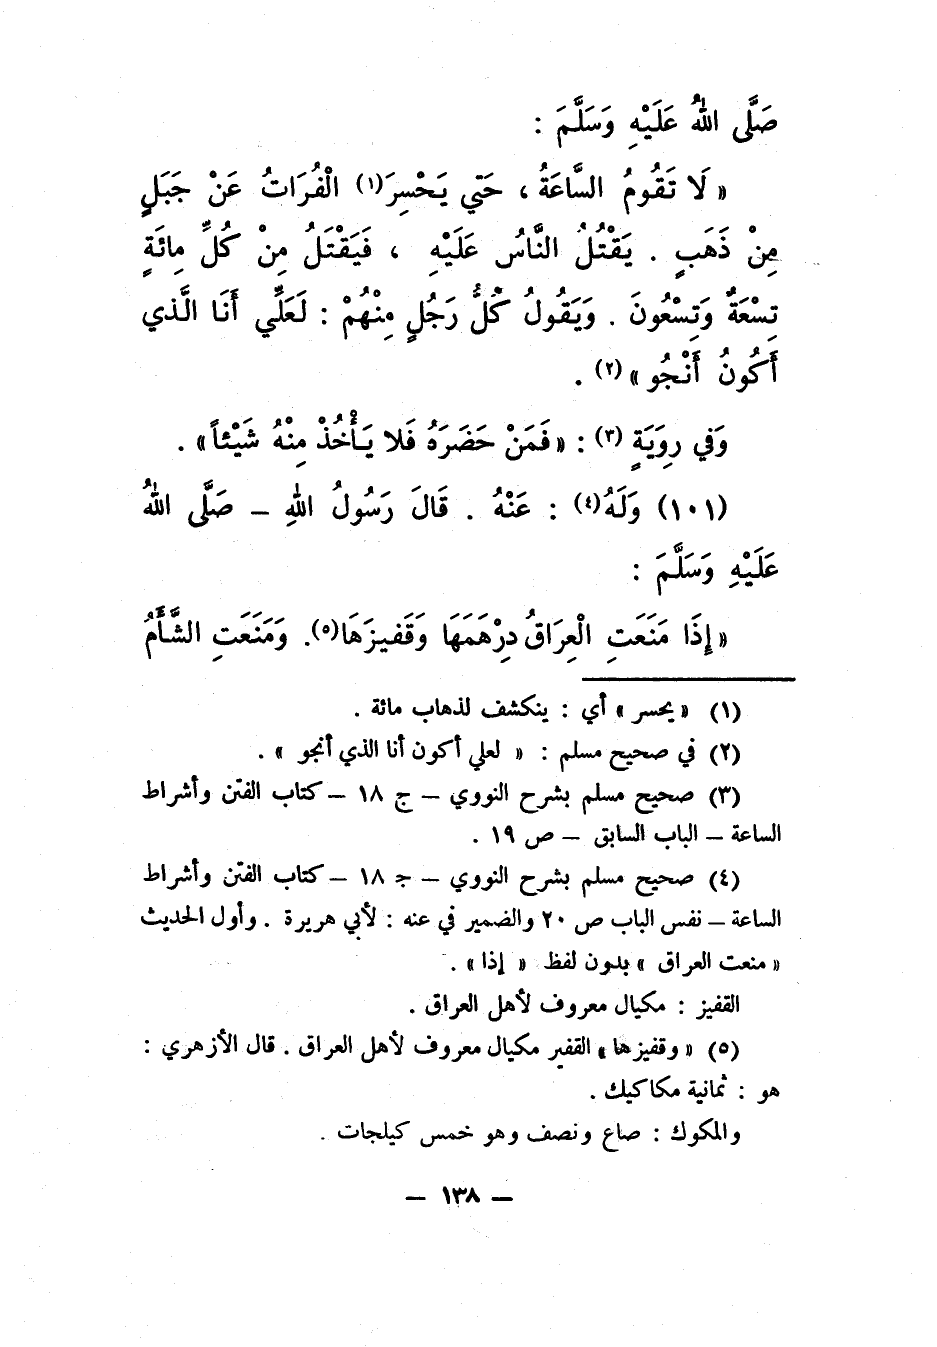 صَلَّى اللهُ عَلَيْهِ وَسَلَّمَ :
« لَا تَقُومُ السَّاعَةُ ، حَتَّي يَحْسِرَ(١) الْفُرَاتُ عَنْ جَبَلٍ
مِنْ ذَهَبٍ . يَقْتُلُ النَّاسُ عَلَيْهِ ، فَيَقْتَلُ مِنْ كُلِّ مِائَةٍ
تِسْعَةٌ وَتِسْعُونَ . وَيَقُولُ كُلُّ رَجُلٍ مِنْهُمْ : لَعَلِّي أَنَا الَّذي
أَكُونُ أَنْجُو »(٢) .
وَفي رِوَيَةٍ (٣) : « فَمَنْ حَضَرَهُ فَلا يَأْخُذْ مِنْهُ شَيْئاً » .
(١٠١) وَلَهُ(٤) : عَنْهُ . قَالَ رَسُولُ اللهِ – صَلَّى اللهُ
عَلَيْهِ وَسَلَّمَ :
« إِذَا مَنَعَتِ الْعِرَاقُ دِرْهَمَهَا وَقَفيزَهَا(٥). وَمَنَعَتِ الشَّأَمُ
(١) « يحسر » أي : ينكشف لذهاب مائة .
(٢) في صحيح مسلم : « لعلي أكون أنا الذي أنجو » .
(٣) صحيح مسلم بشرح النووي – ج ١٨ – كتاب الفتن وأشراط
الساعة – الباب السابق – ص ١٩ .
(٤) صحيح مسلم بشرح النووي – جـ ١٨ – كتاب الفتن وأشراط
الساعة – نفس الباب ص ٢٠ والضمير في عنه : لأبي هريرة . وأول الحديث
« منعت العراق » بدون لفظ « إذا » .
القفيز : مكيال معروف لأهل العراق .
(٥) « وقفيزها » القفير مكيال معروف لأهل العراق . قال الأزهري :
هو : ثمانية مكاكيك .
والمكوك : صاع ونصف وهو خمس كيلجات .
– ١٣٨ –